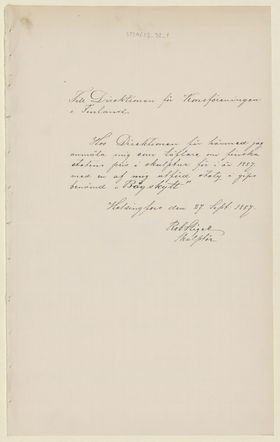 Till Direktionen för Konstföreningen
i Finland.
Hos Direktionen får härmed jag
anmäla mig som täflare om finska
statens pris i skulptur för i år 1887.
med en af mig utförd staty i gips
benämd i "Bågskytt"
Helsingfors den 27 Sept. 1887.
Rob Stigell
Skulptör